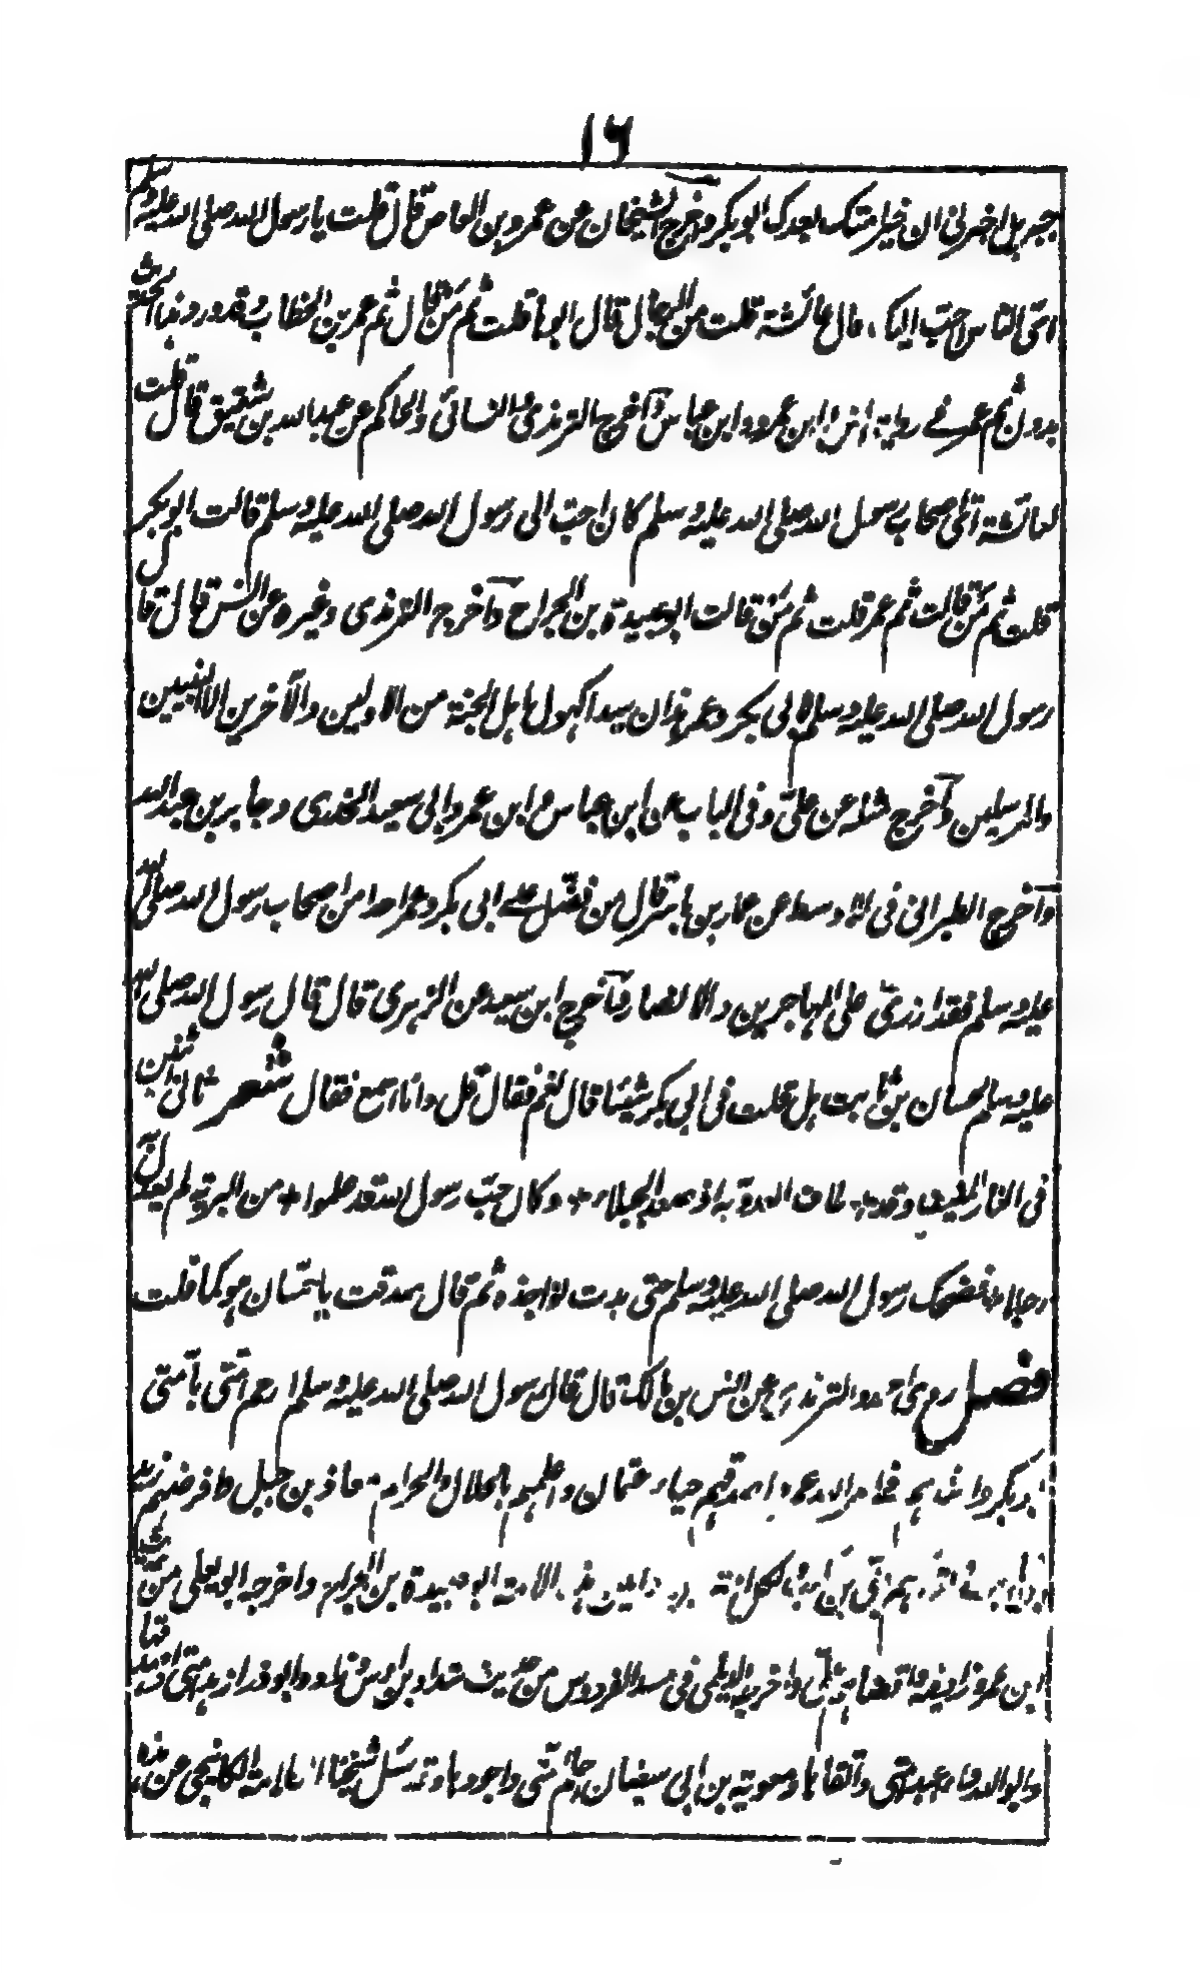 ١٦
جبريل اخبرني ان خير امتك بعدك ابو بكر واخرج الشيخان عن عمرو بن العاص قال قلت يا رسول الله صلى الله عليه وسلم
اى الناس احب اليك قال عائشة قلت من الرجال قال ابوها قلت ثم من قال ثم عمر بن الخطاب وقد ورد هذا الحديث
بدون ثم عمر فى رواية انس وابن عمرو وابن عباس واخرج الترمذى والنسائى والحاكم عن عبد الله بن شقيق قال قلت
لعائشة اى اصحاب رسول الله صلى الله عليه وسلم كان احب الى رسول الله صلى الله عليه وسلم قالت ابو بكر
قلت ثم من قالت ثم عمر قلت ثم من قالت ابو عبيدة بن الجراح واخرج الترمذى وغيره عن انس قال قال
رسول الله صلى الله عليه وسلم لابى بكر وعمر هذان سيدا كهول اهل الجنة من الاولين والآخرين الا النبيين
والمرسلين واخرج مثله عن على وفى الباب عن ابن عباس وابن عمر وابى سعيد الخدرى وجابر بن عبد الله
واخرج الطبرانى فى الاوسط عن عمار بن ياسر قال من فضل على ابى بكر وعمر احدا من اصحاب رسول الله صلى الله
عليه وسلم فقد ازرى على المهاجرين والانصار واخرج ابن سعد عن الزهرى قال قال رسول الله صلى الله
عليه وسلم لحسان بن ثابت هل قلت فى ابى بكر شيئا قال نعم فقال قل وانا اسمع فقال شعر ثانى اثنين
فى الغار المنيف وقد طاف العدو به اذ صعد الجبلا وكان حب رسول الله قد علموا من البرية لم يعدل به
رجلا فضحك رسول الله صلى الله عليه وسلم حتى بدت نواجذه ثم قال صدقت يا حسان هو كما قلت
فصل روى احمد والترمذى عن انس بن مالك قال قال رسول الله صلى الله عليه وسلم ارحم امتى بامتى
ابو بكر واشدهم فى امر الله عمر واصدقهم حياء عثمان واعلمهم بالحلال والحرام معاذ بن جبل وافرضهم زيد
ابى بن كعب ولكل امة امين وامين هذه الامة ابو عبيدة بن الجراح واخرجه ابو يعلى من حديث
ابن عمر وزاد فيه واقضاهم على واخرجه الديلمى فى مسند الفردوس من حديث شداد بن اوس وزاد وابو ذر ازهد امتى
وابو الدرداء اعبد امتى واتقاها ومعوية بن ابى سفيان احلم امتى واجودها وقد سئل شيخنا العلامة الكافيجى عن هذه